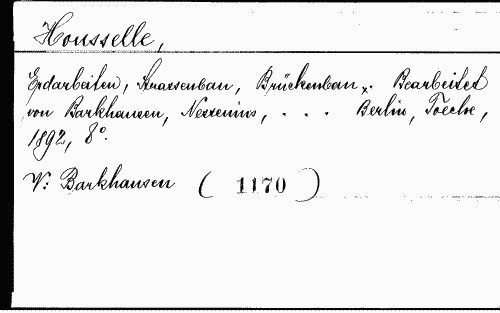 Housselle,
Erdarbeiten, Strassenbau, Brückenbau. Bearbeitet
von Barkhausen, Nessenius, . . . Berlin, Toeche,
1892, 8°.
V: Barkhausen ( 1170 )